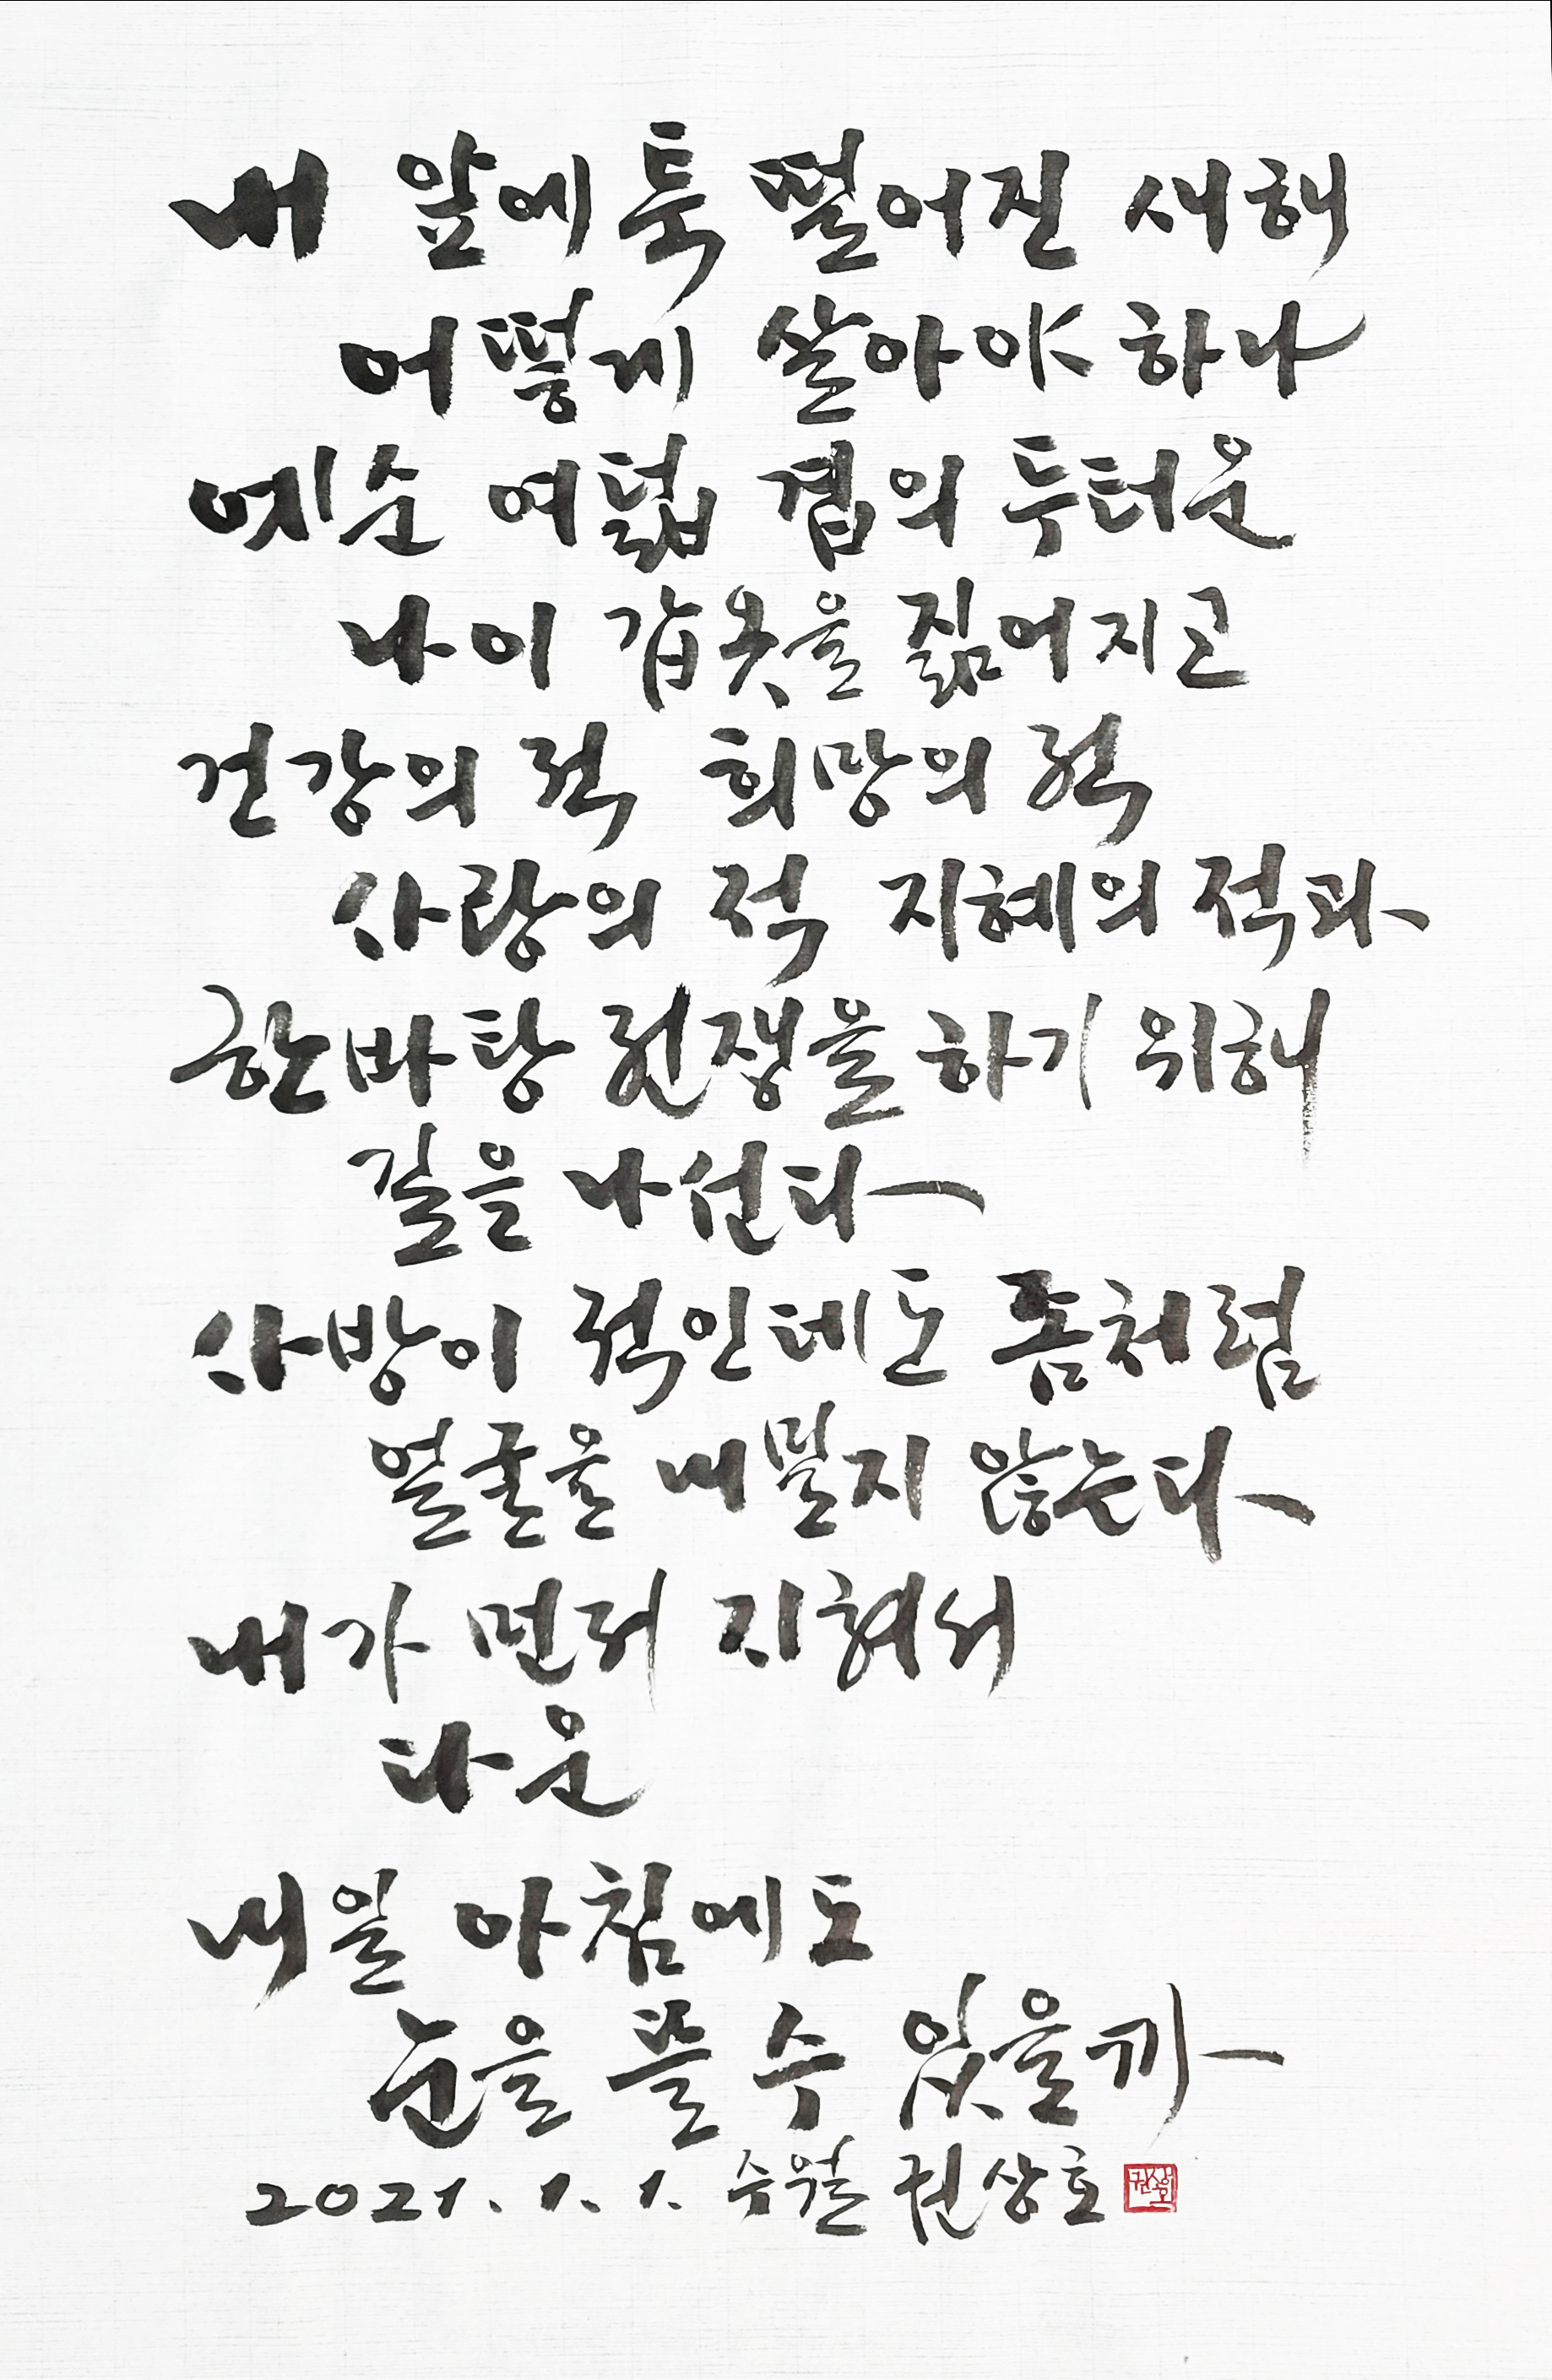 내 앞에 툭 떨어진 새해
어떻게 살아야 하나
예순 여덟 겹의 두터운
나이 갑옷을 짊어지고
건강의 적 희망의 적
사랑의 적 지혜의 적과
한바탕 전쟁을 하기 위해
길을 나선다
사방이 적인데도 좀처럼
얼굴을 내밀지 않는다
내가 먼저 지쳐서
다운
내일 아침에도
눈을 뜰 수 있을까
2021. 1. 1. 수월 권상호
권상호